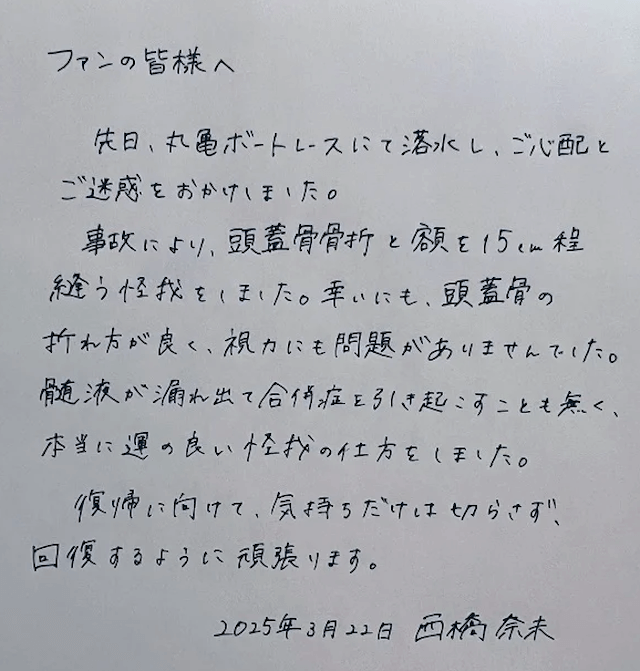 ファンの皆様へ
先日、丸亀ボートレースにて落水し、ご心配と
ご迷惑をおかけしました。
事故により、頭蓋骨骨折と額を15cm程
縫う怪我をしました。幸いにも、頭蓋骨の
折れ方が良く、視力にも問題がありませんでした。
髄液が漏れ出て合併症を引き起こすことも無く、
本当に運の良い怪我の仕方をしました。
復帰に向けて、気持ちだけは切らさず、
回復するように頑張ります。
2025年3月22日 西橋奈未